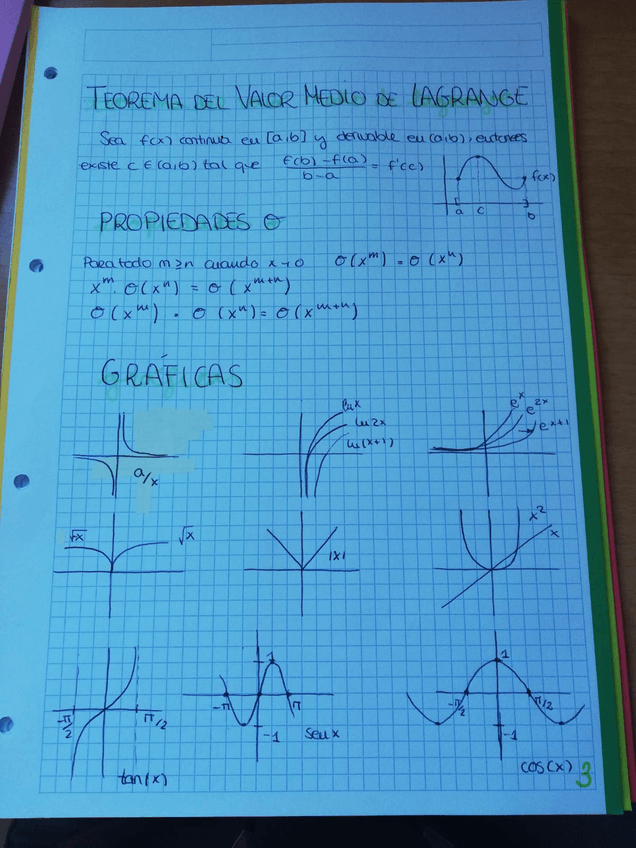 TEOREMA DEL VALOR MEDIO DE LAGRANGE
Sea f(x) continua en [a,b] y derivable en (a,b), entonces
existe c ∈ (a,b) tal que (f(b) - f(a))/(b-a) = f'(c)
f(x)
a c b
PROPIEDADES O
Para todo m ≥ n cuando x→0 O(x^m) = O(x^n)
x^m · O(x^n) = O(x^{m+n})
O(x^m) · O(x^n) = O(x^{m+n})
GRÁFICAS
a/x
ln x
ln 2x
ln(x+1)
e^x
e^{2x}
e^{x+1}
√x √x
|x|
x^2
x
-π/2 π/2
tan(x)
1
-π π
-1
sen x
1
-π/2 π/2
-1
cos(x)
3